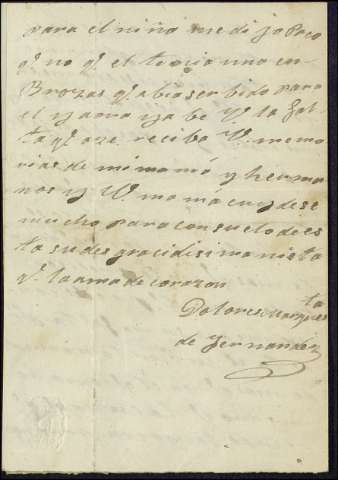 para el niño me dijo Paco
qe no qe el tenia uno en
Brozas qe abia serbido para
el y aora ya be V. la fal
ta qe aze reciba V. memo
rias de mi mamá y herma
nos y V. mamá cuydese
mucho para consuelo de es
ta su desgracidisima nieta
qe la ama de corazon
Dolores
de Fernandez